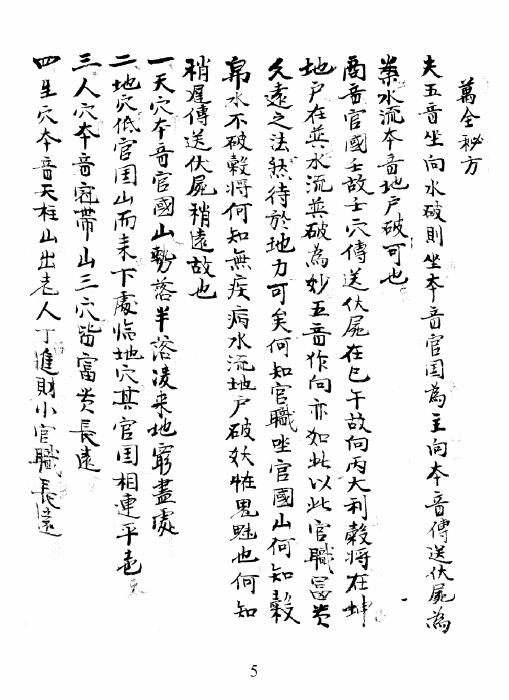 萬全秘方
夫五音坐向水破則坐本音官国為主向本音傳送伏屍為
案水流本音地戶破可也
商音官國壬故壬穴傳送伏屍在巳午故向丙大利穀將在坤
地戶在巽水流巽破為妙五音作向亦如此以此官職冨贵
久遠之法然待於地力可矣何知官職坐官國山何知穀
帛水不破穀將何知無疾病水流地戶破妖怪鬼魅也何知
稍遲傳送伏屍稍遠故也
一天穴本音官國山勢落半落凌来地窮盡處
二地穴低官国山而来下處临地穴其官国相連平
三人穴本音冠帶山三穴皆富贵長遠
四生穴本音天柱山出老人丁進財小官職長遠
5